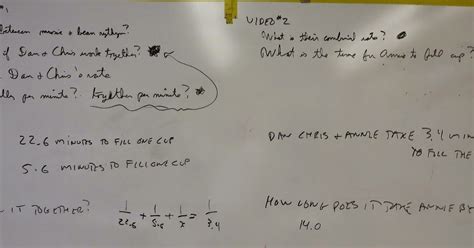 VIDEO #2
between movie + bean
of Dan + Chris work together?
Dan + Chris's rate
per minute? together per minute?
What is their combined rate?
What is the time for Annie to fill cup?
22.6 MINUTES TO FILL ONE CUP
5.6 MINUTES TO FILL ONE CUP
DAN CHRIS + ANNIE TAKE 3,4 MIN
TO FILL THE
IT TOGETHER?
1/22.6 + 1/5.6 + 1/x = 1/3,4
HOW LONG DOES IT TAKE ANNIE BY
14.0